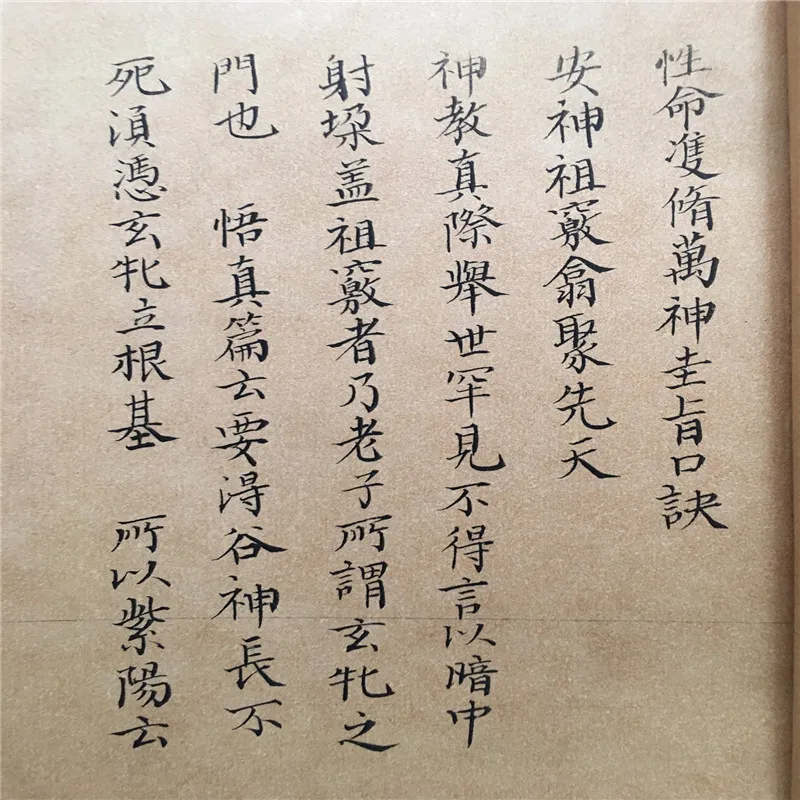 性命雙脩萬神圭旨口訣
安神祖竅翕聚先天
神教真際舉世罕見不得言以暗中
射垛蓋祖竅者乃老子所謂玄牝之
門也 悟真篇云要得谷神長不
死須憑玄牝立根基 所以紫陽云